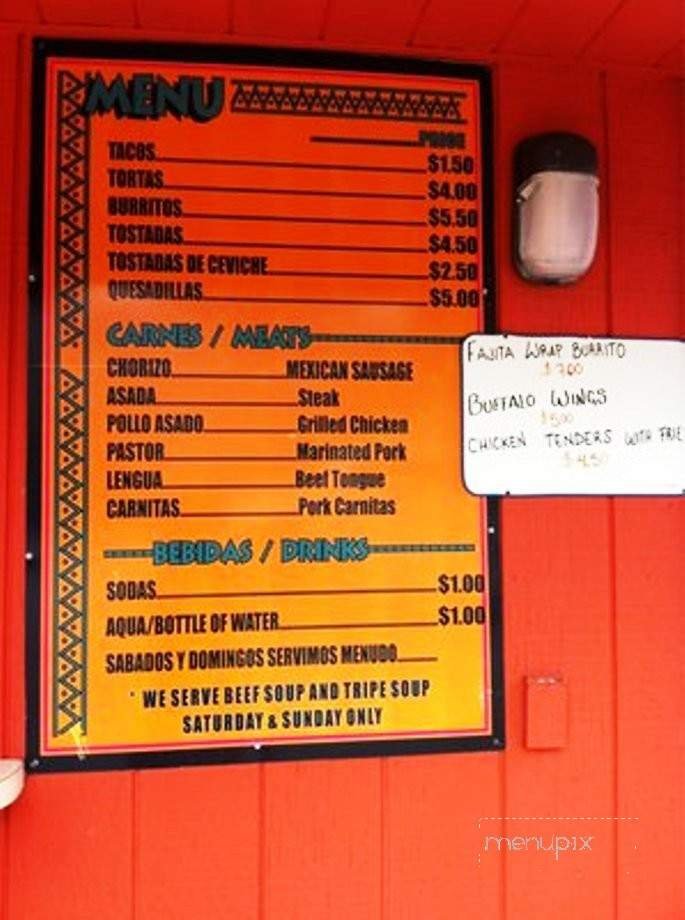 MENU
PRICE
TACOS $1.50
TORTAS $4.00
BURRITOS $5.50
TOSTADAS $4.50
TOSTADAS DE CEVICHE $2.50
QUESADILLAS $5.00
CARNES / MEATS
CHORIZO MEXICAN SAUSAGE
ASADA Steak
POLLO ASADO Grilled Chicken
PASTOR Marinated Pork
LENGUA Beef Tongue
CARNITAS Pork Carnitas
BEBIDAS / DRINKS
SODAS $1.00
AQUA/BOTTLE OF WATER $1.00
SABADOS Y DOMINGOS SERVIMOS MENUDO
* WE SERVE BEEF SOUP AND TRIPE SOUP
SATURDAY & SUNDAY ONLY
FAJITA WRAP BURRITO
$7.00
BUFFALO WINGS
$5.00
CHICKEN TENDERS WITH FRIE
$4.50
menupix